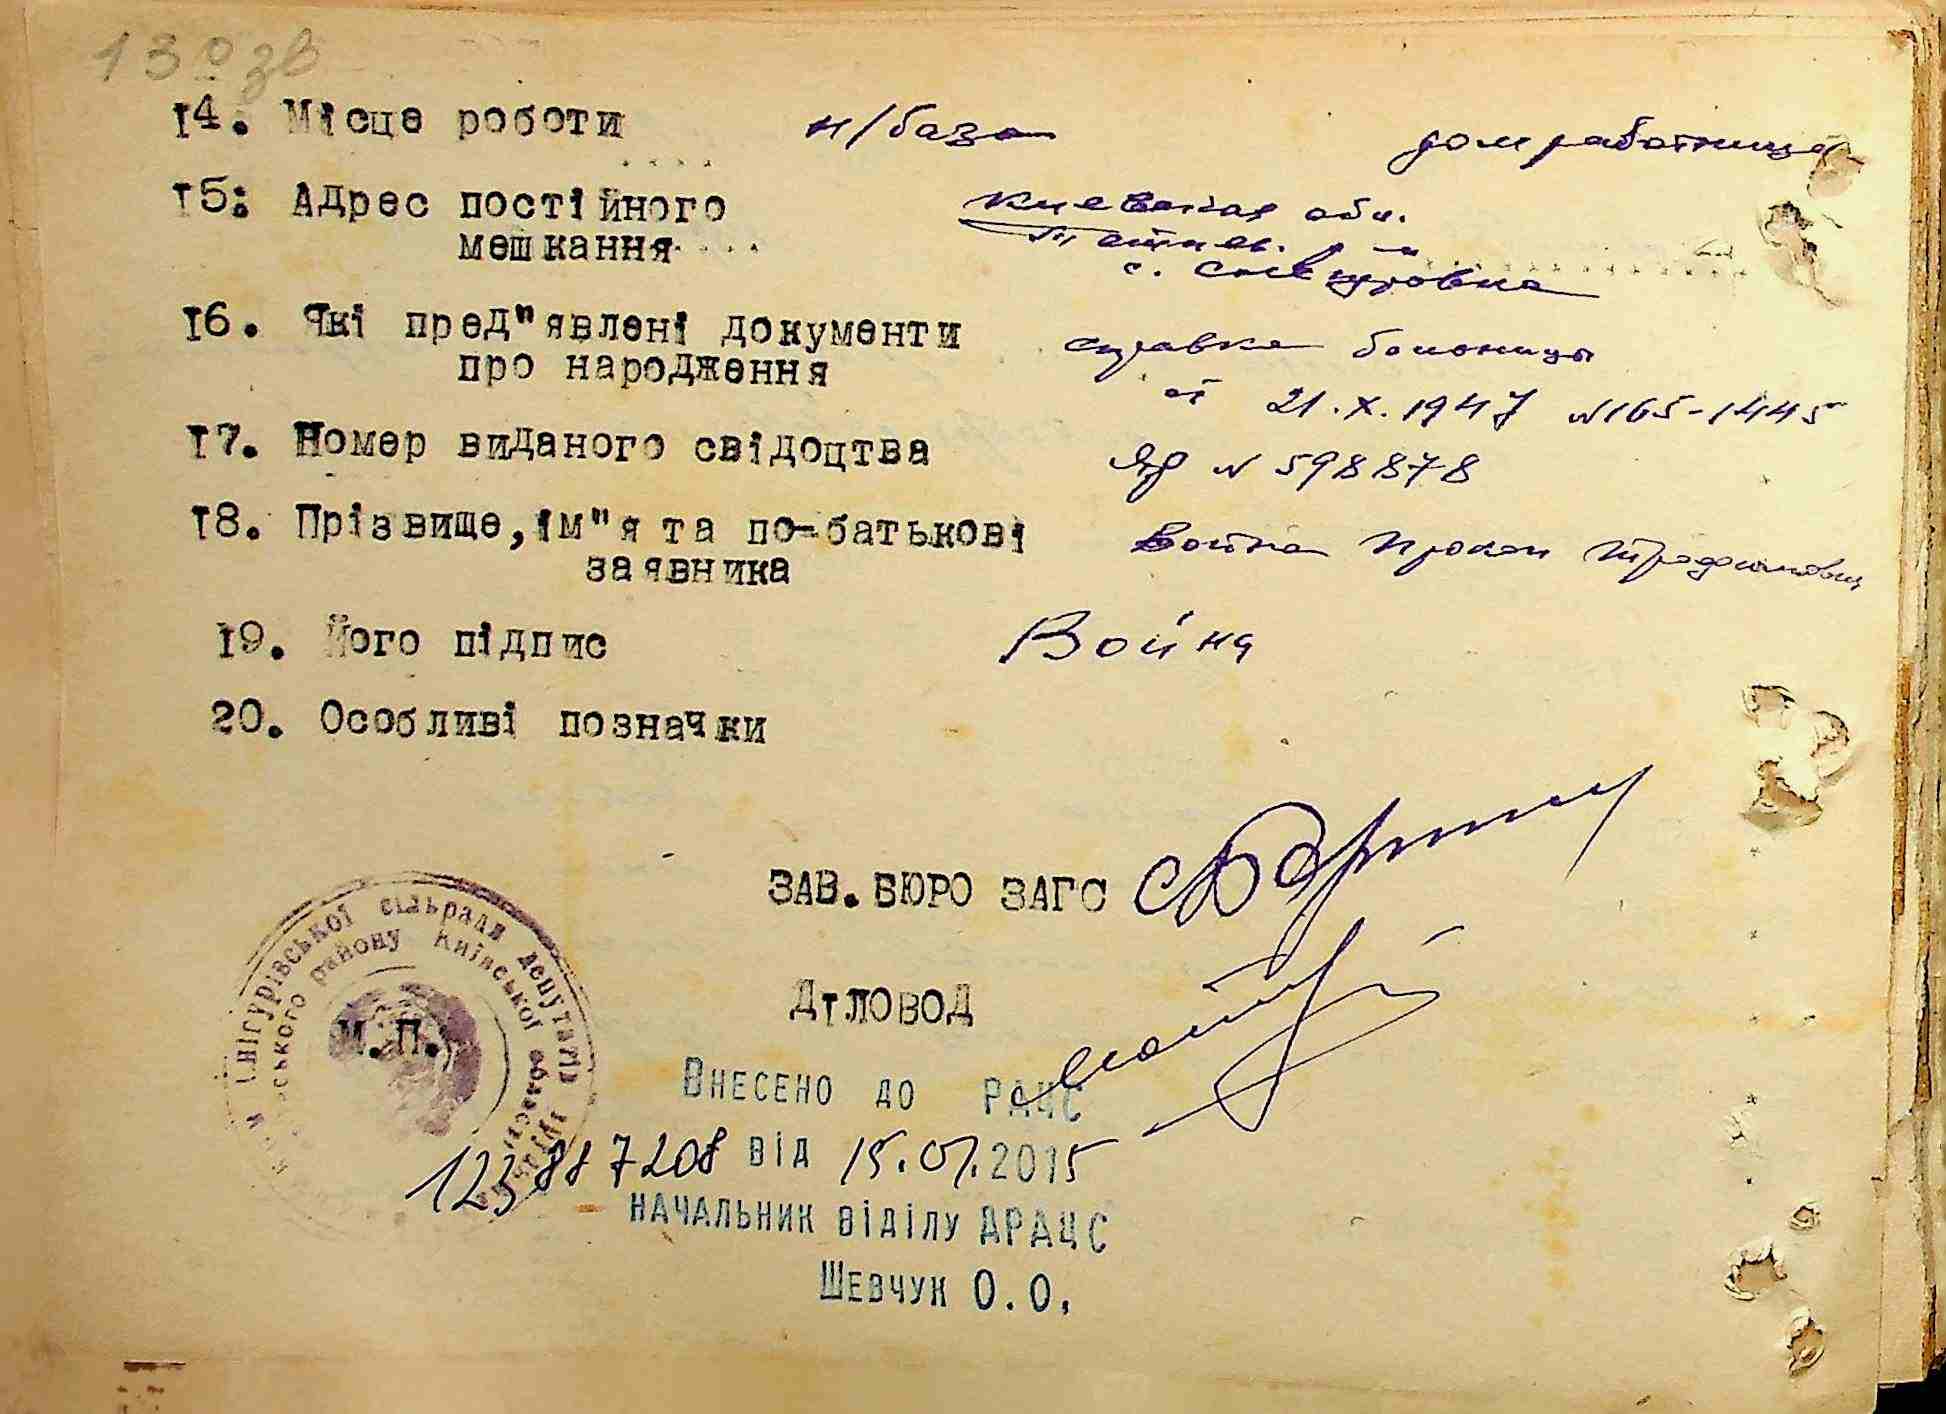 130 зв
14. Місце роботи н/база домработница
15: Адрес постійного Киевская обл.
мешкання р-н
с. Снегуровка
16. Які пред"явлені документи справка больницы
про народження от 21.X.1947 N165-1445
17. Номер виданого свідоцтва ЯР N 598878
18. Прізвище, ім"я та по-батькові Война Прокоп Трофимович
заявника
19. Його підпис Война
20. Особливі позначки
ЗАВ. БЮРО ЗАГС
Діловод
М.П.
сільради депутатів
району Київської області
Внесено до РАЦС
123887208 від 15.01.2015
начальник відділу ДРАЦС
Шевчук О.О.